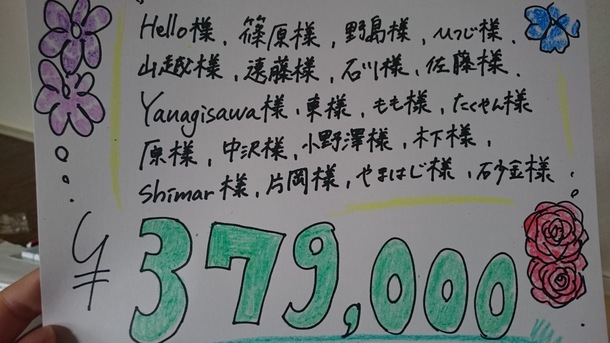 Hello様、篠原様、野島様、ひつじ様、
山越様、遠藤様、石川様、佐藤様、
Yanagisawa様、東様、もも様、たくやん様
原様、中沢様、小野澤様、木下様、
Shimar様、片岡様、やまはじ様、砂金様
¥379,000